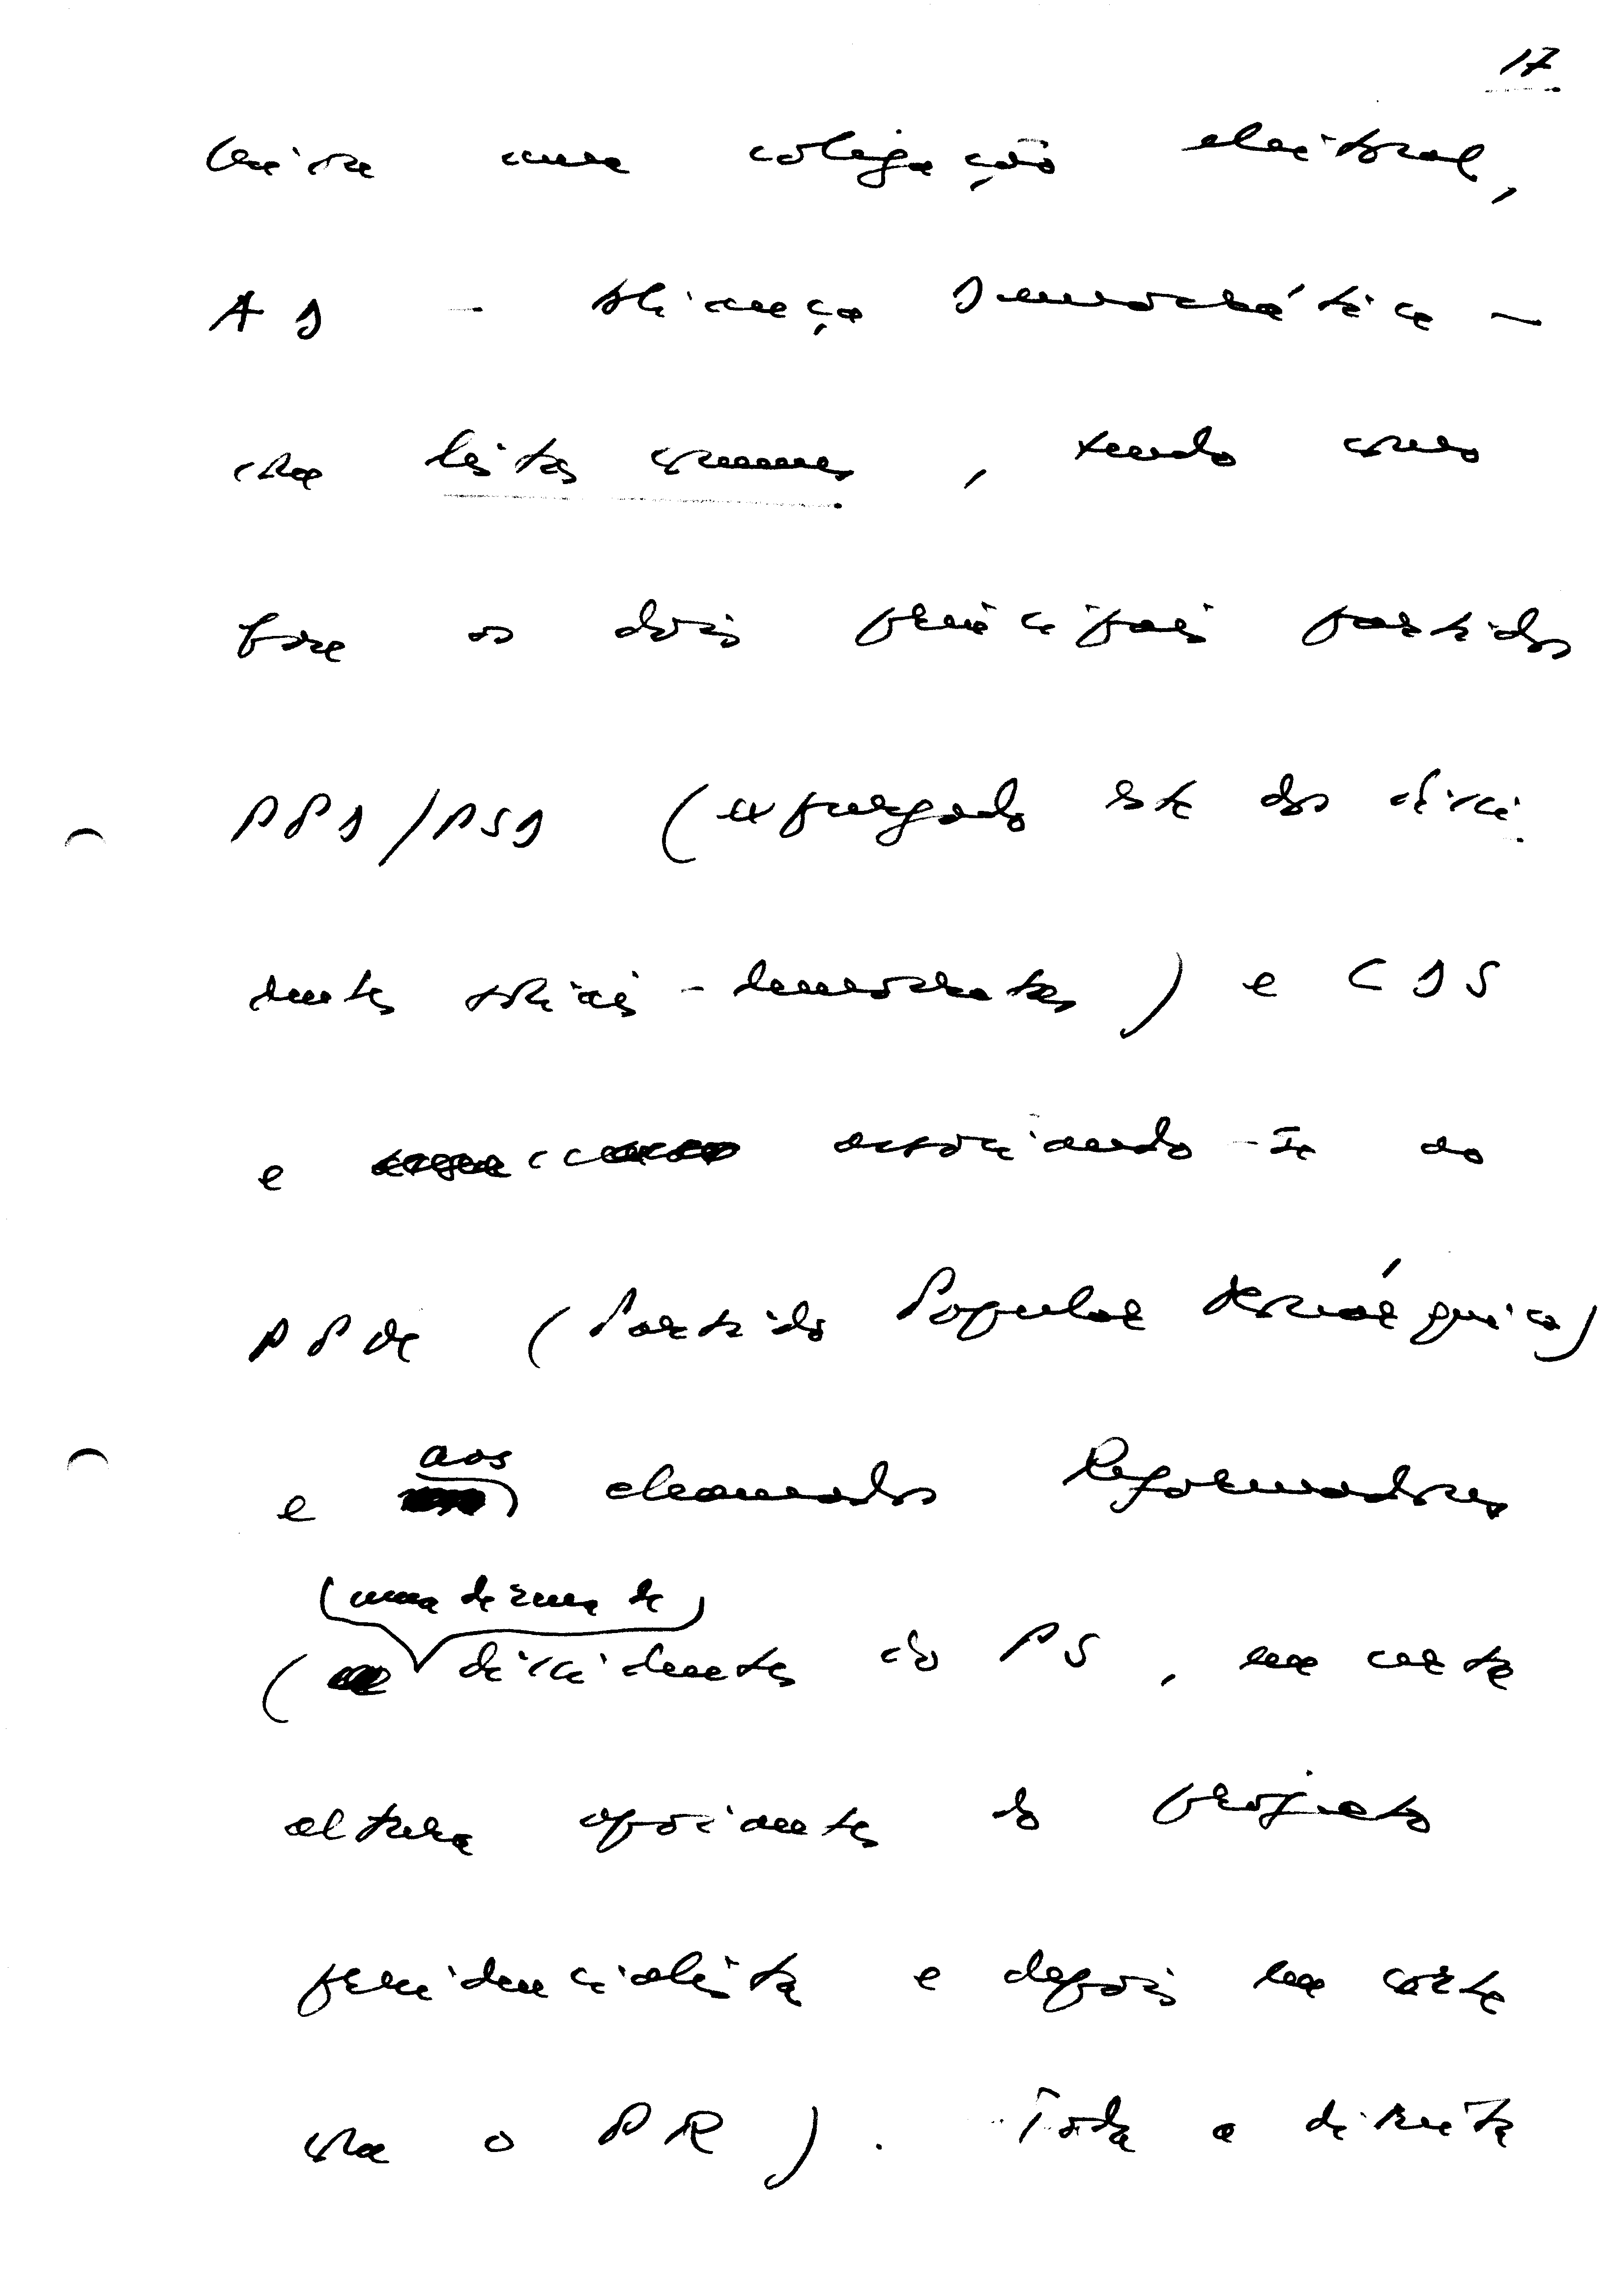 17
uma coligação eleitoral,
AD - Aliança Democrática -
com listas comuns, tendo como
base os dois principais partidos
PPD/PSD (expurgado este dos dissi
dentes sociais-democratas) e CDS
e associando-se ao
PPM (Partido Popular Monárquico)
e aos chamados Reformadores
(uma dezena de)
( dissidentes do PS, em certa
altura apoiantes do projecto
presidencialista e depois em corte
com o PR). Toda a direita